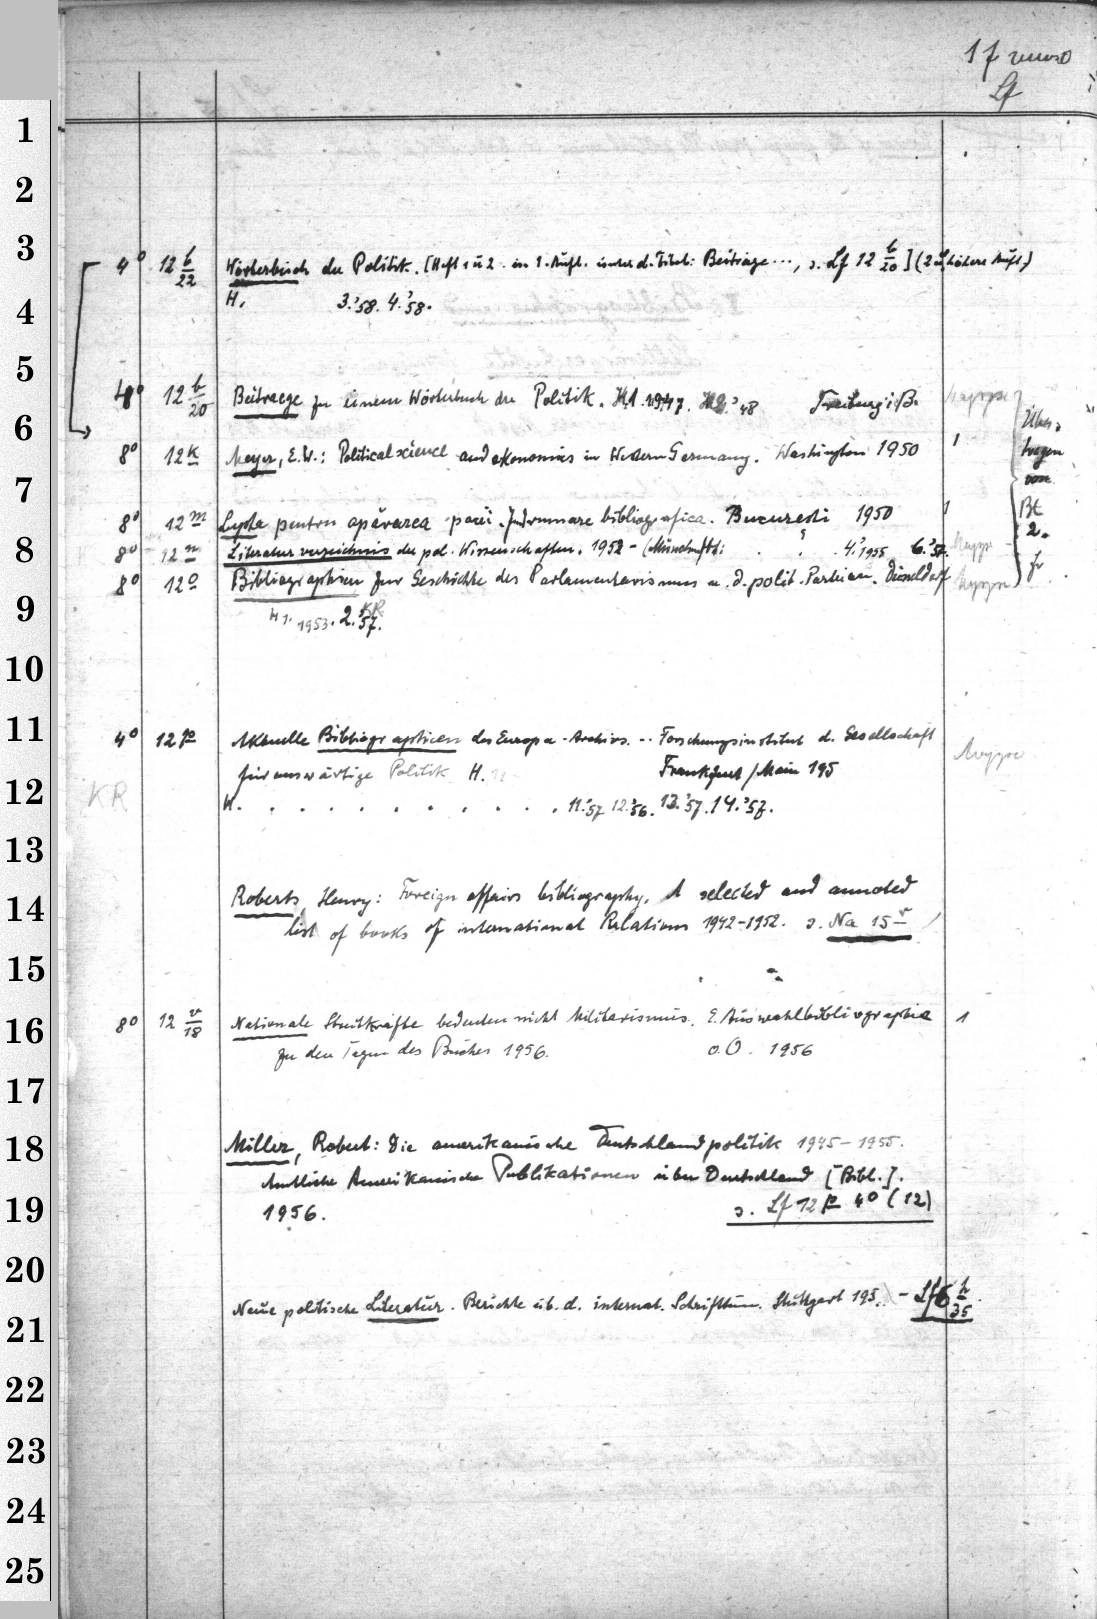 1f verso
Lf
1
2
3
4° 12 b/22 Wörterbuch der Politik. [Heft 1 u 2 in 1. Aufl. unter d. Titel: Beiträge ..., s. Lf 12 b/20] (2. u. höhere Aufl.)
H. 3.'58. 4.'58.
4
5
8° 12 b/20 Beitraege zu einem Wörterbuch der Politik. H.1.1947. H2.'48 Freiburg i/B. Mappe
6
8° 12 k Meyer, E.W.: Political science and economics in Western Germany. Washington 1950 1
Über-
tragen
von
Bt
2.
fr
7
8° 12 m Lupta pentru apărarea păcii. Indrumare bibliografica. Bucuresti 1950 1
8
8° 12 n Literaturverzeichnis der pol. Wissenschaften. 1952 - (München) 4.'1955 6.'57. Mappe
8° 12 o Bibliographien zur Geschichte des Parlamentarismus u. d. polit. Parteien. Düsseldorf Mappe
9
H 1. 1953. 2.'57. KR
10
11
4° 12 p Aktuelle Bibliographien des Europa-Archivs. -- Forschungsinstitut d. Gesellschaft Mappe
für auswärtige Politik H. Frankfurt/Main 195
12
KR H. . . . . . . . . . . 11.'57 12.'56. 13.'57. 14.'57.
13
14
Roberts, Henry: Foreign affairs bibliography. A selected and annoted
list of books of international Relations 1942-1952. s. Na 15 v
15
16
8° 12 v/18 Nationale Streitkräfte bedeuten nicht Militarismus. E. Auswahlbibliographie 1
zu den Tagen des Buches 1956. o.O. 1956
17
18
Miller, Robert: Die amerikanische Deutschlandpolitik 1945-1955.
Amtliche Amerikanische Publikationen über Deutschland [Bibl.].
19
1956. s. Lf 12 p 4° (12)
20
21
Neue politische Literatur. Berichte üb. d. internat. Schrifttum. Stuttgart 195. - Lf 6 h/35
22
23
24
25